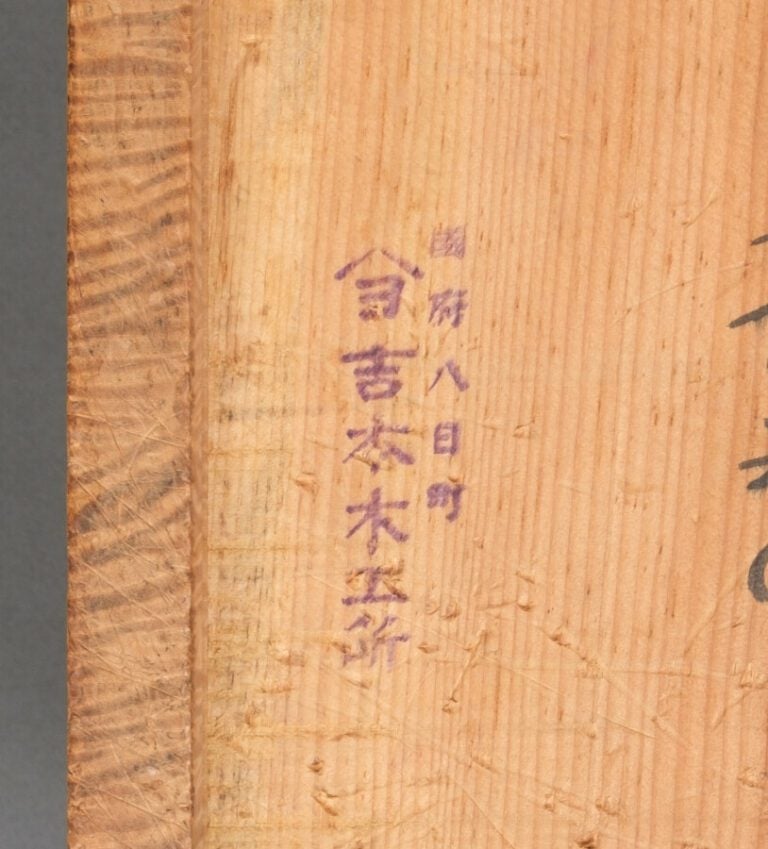 國府八日町
吉本木工所